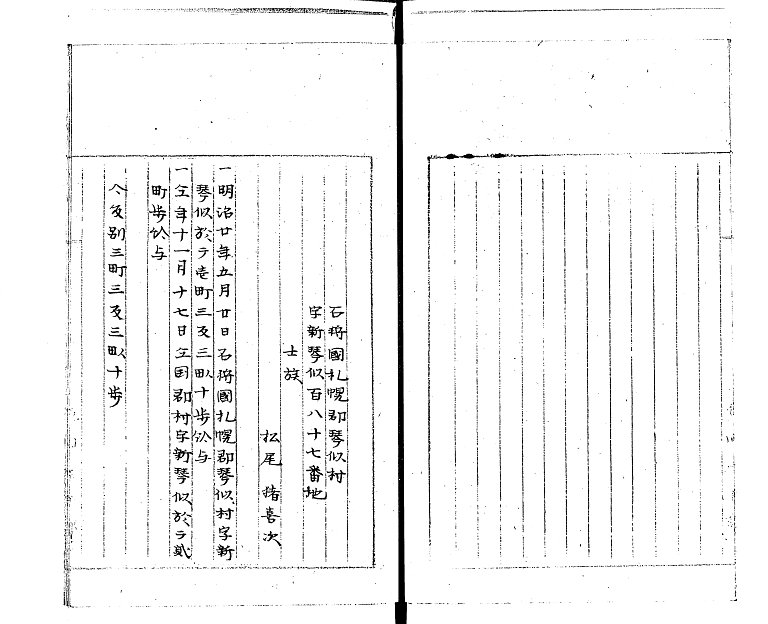 石狩國札幌郡琴似村
字新琴似百八十七番地
士族
松尾 猪喜次
一明治廿年五月廿日石狩國札幌郡琴似村字新
琴似於テ壱町三反三畝十歩給与
一仝年十一月十七日仝国郡村字新琴似於テ貳
町歩給与
反別三町三反三畝十歩